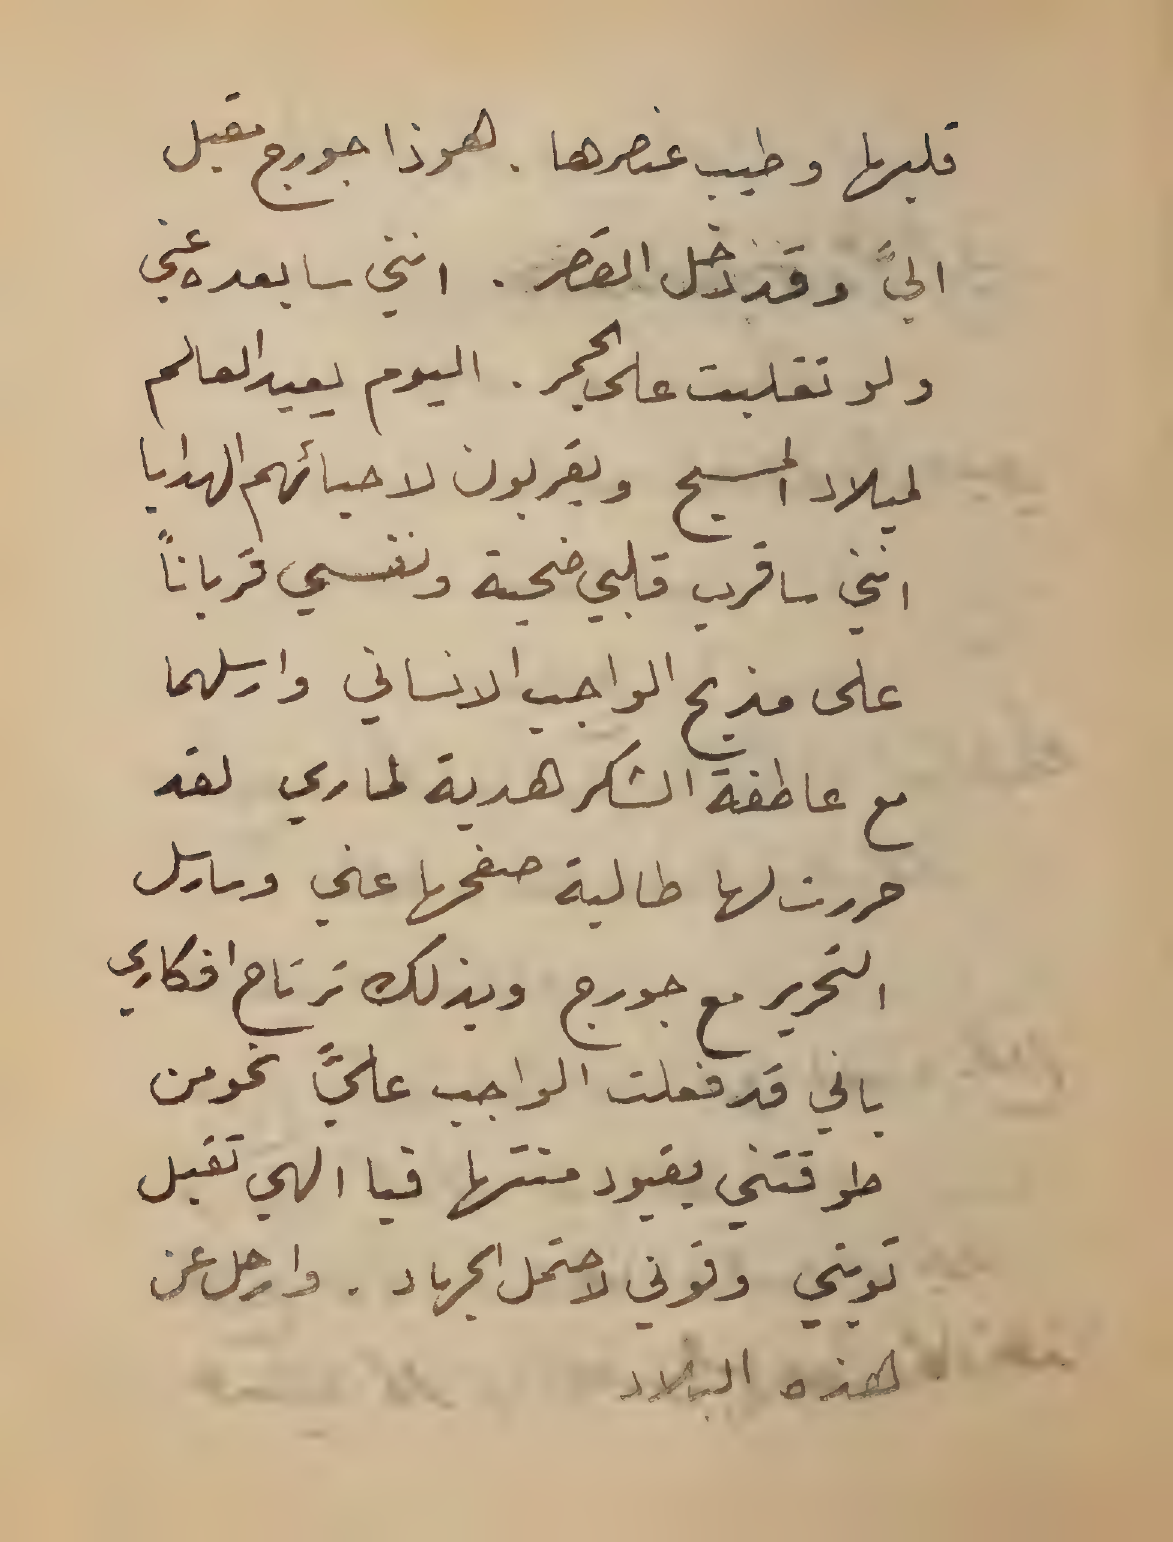 قلبها وطيب عنصرها . هوذا جورج مقبل
اليَّ وقد دخل القصر . انني سابعده عني
ولو تقلبت على الجمر . اليوم يعيد العالم
لميلاد المسيح ويقربون لاحبائهم الهدايا
انني ساقرب قلبي ضحية ونفسي قرباناً
على مذبح الواجب الانساني وارسلهما
مع عاطفة الشكر هدية لماري لقد
حررت لها طالبة صفحها عني وسارسل
التحرير مع جورج وبذلك ترتاح افكاري
باني قد فعلت الواجب عليَّ نحو من
طوقتني بقيود منتها فيا الهي تقبل
توبتي وقوني لاحتمل الجهاد . وارحل عن
هذه البلاد